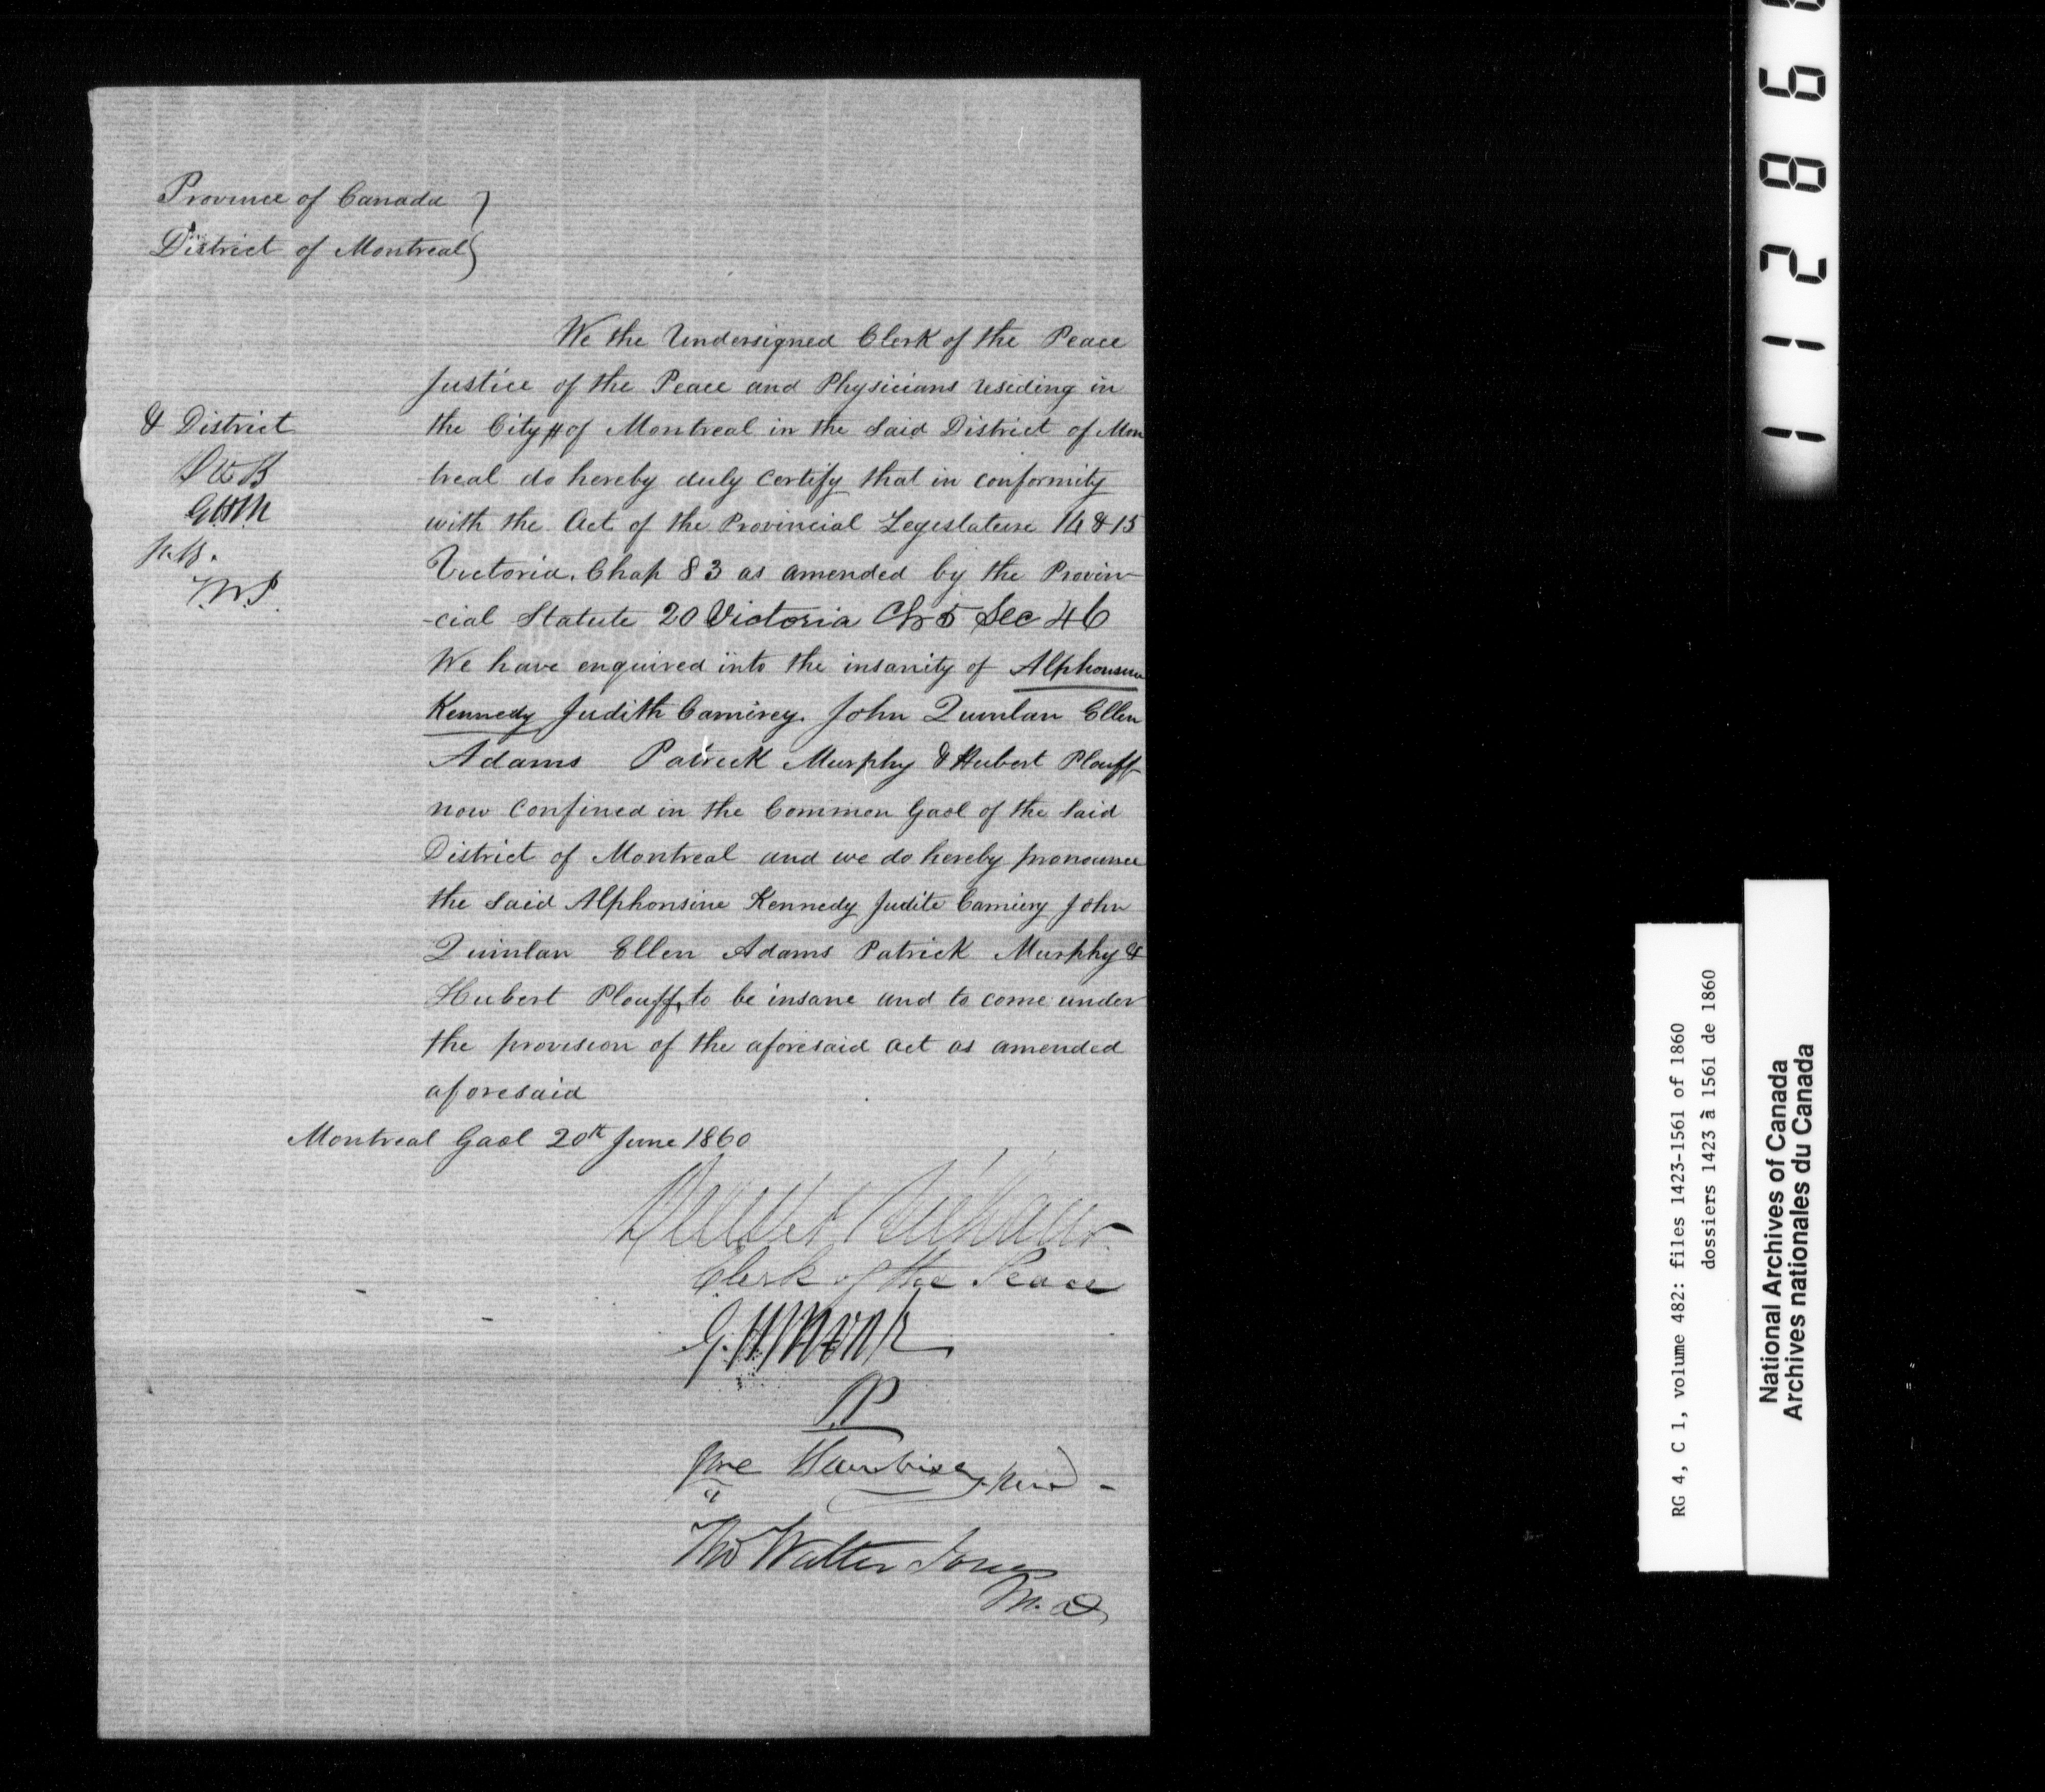 Province of Canada
District of Montreal
We the Undersigned Clerk of the Peace
Justice of the Peace and Physicians residing in
the City # of Montreal in the said District of Mon
treal do hereby duly certify that in conformity
with the Act of the Provincial Legislature 14 & 15
Victoria. Chap 83 as amended by the Provin-
-cial Statute 20 Victoria Ch 5 Sec 46
We have enquired into the insanity of Alphonsine
Kennedy Judith Camirey. John Quinlan Ellen
Adams Patrick Murphy & Hubert Plouff
now confined in the Common Gaol of the said
District of Montreal and we do hereby pronounce
the said Alphonsine Kennedy Judite Camiery John
Quinlan Ellen Adams Patrick Murphy &
Hubert Plouff, to be insane and to come under
the provision of the aforesaid act as amended
aforesaid
& District
G.H.M
T.W.J.
Montreal Gaol 20th June 1860
Clerk of the Peace
G. H Monk
JP
Tho Walter Jones
M.D,
112869
RG 4, C 1, volume 482: files 1423-1561 of 1860
dossiers 1423 à 1561 de 1860
National Archives of Canada
Archives nationales du Canada